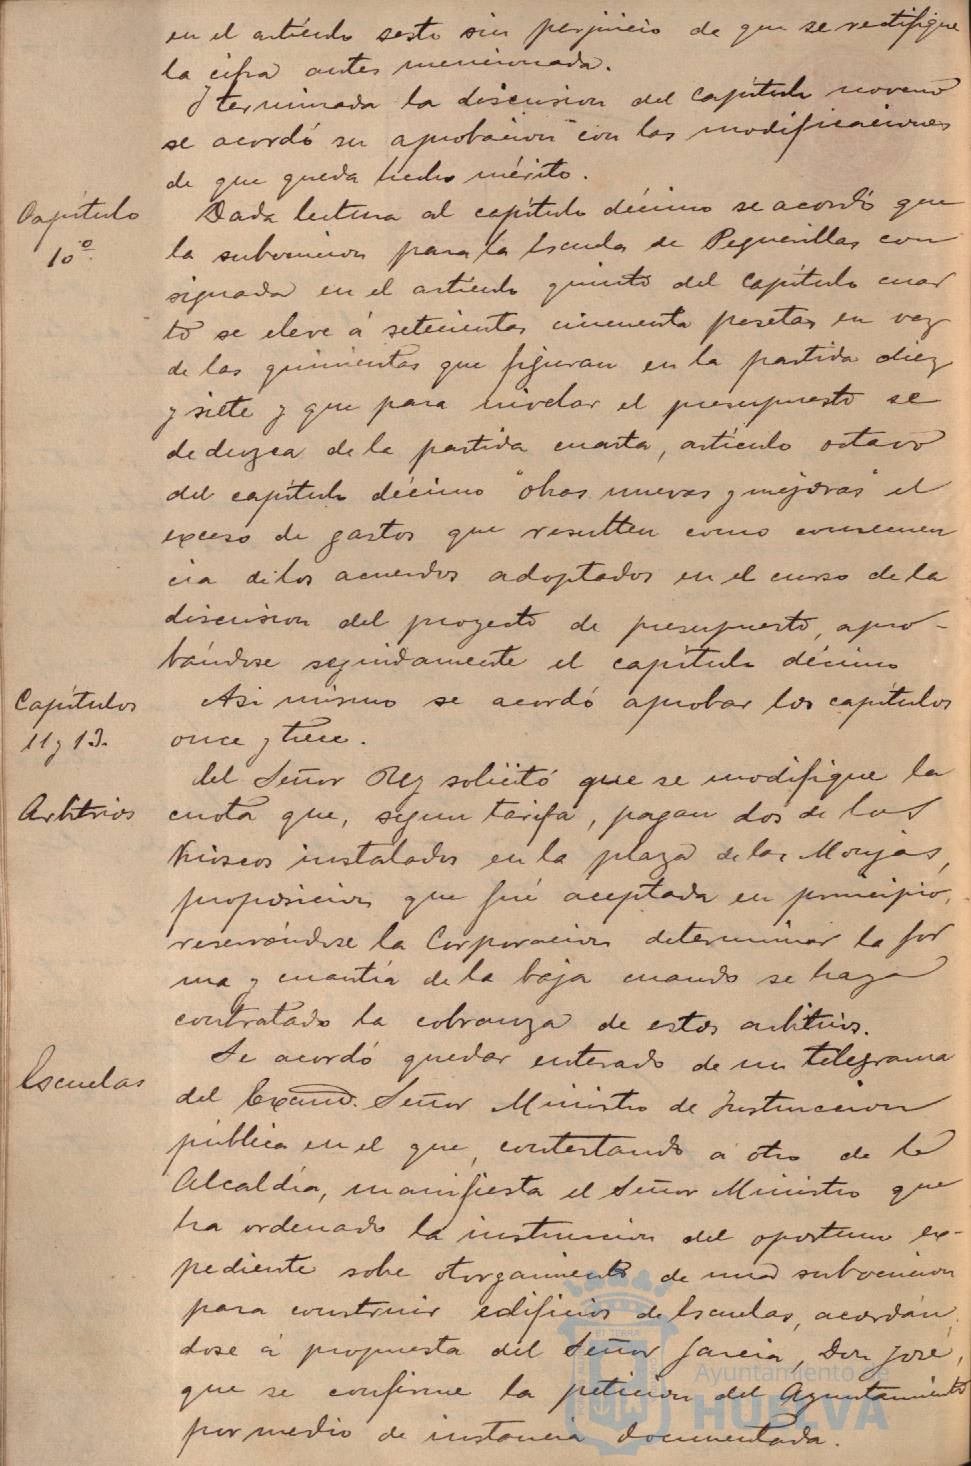 en el artículo sesto sin perjuicio de que se rectifique
la cifra antes mencionada.
Y terminada la discusion del capítulo noveno
se acordó su aprobacion con las modificaciones
de que queda hecho mérito.
Capítulo
10º
Dada lectura al capítulo décimo se acordó que
la subvencion para la Escuela de Peguerillas con
signada en el artículo quinto del capítulo cuar
to se eleve á setecientas cincuenta pesetas en vez
de las quinientas que figuran en la partida diez
y siete y que para nivelar el presupuesto se
deduzca de la partida cuarta, artículo octavo
del capítulo décimo "obras nuevas y mejoras" el
exceso de gastos que resulten como consecuen
cia de los acuerdos adoptados en el curso de la
discusion del proyecto de presupuesto, apro-
bándose seguidamente el capítulo décimo
Capítulos
11 y 13.
Asi mismo se acordó aprobar los capítulos
once y trece.
Arbitrios
del Señor Rey solicitó que se modifique la
cuota que, segun tarifa, pagan dos de los
kioscos instalados en la plaza de las Monjas,
proposicion que fué aceptada en principio,
reservándose la Corporacion determinar la for
ma y cuantía de la baja cuando se haya
contratado la cobranza de estos arbitrios.
Escuelas
Se acordó quedar enterado de un telegrama
del Excmo. Señor Ministro de Instruccion
pública en el que, contestando á otro de la
Alcaldía, manifiesta el Señor Ministro que
ha ordenado la instruccion del oportuno ex-
pediente sobre otorgamiento de una subvencion
para construir edificios de Escuelas, acordán
dose á propuesta del Señor García, Don José,
que se confirme la peticion del Ayuntamiento
por medio de instancia documentada.
Ayuntamiento de
HUELVA